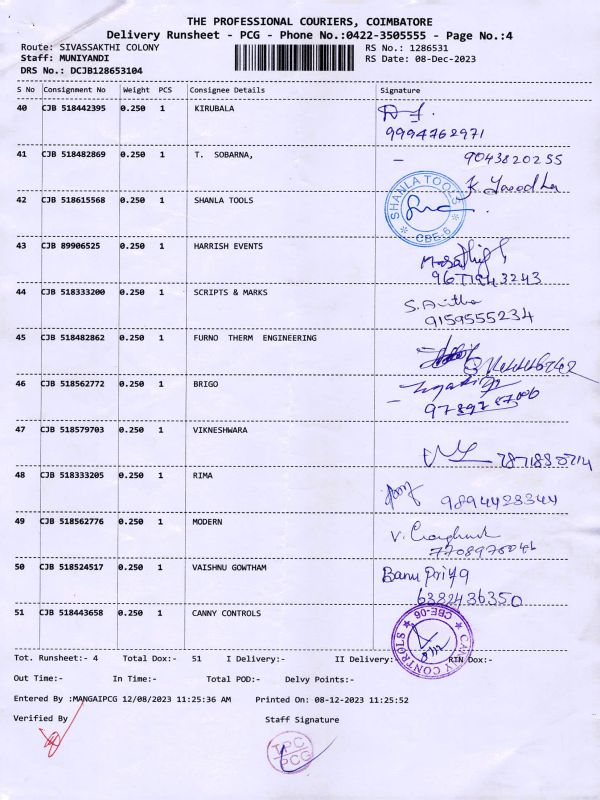 THE PROFESSIONAL COURIERS, COIMBATORE
Delivery Runsheet - PCG - Phone No.:0422-3505555 - Page No.:4
Route: SIVASSAKTHI COLONY RS No.: 1286531
Staff: MUNIYANDI RS Date: 08-Dec-2023
DRS No.: DCJB128653104
S No Consignment No Weight PCS Consignee Details Signature
40 CJB 518442395 0.250 1 KIRUBALA
9994762971
41 CJB 518482869 0.250 1 T. SOBARNA, - 9043820255
42 CJB 518615568 0.250 1 SHANLA TOOLS SHANLA TOOLS CBE-6
43 CJB 89906525 0.250 1 HARRISH EVENTS
44 CJB 518333200 0.250 1 SCRIPTS & MARKS
9159555234
45 CJB 518482862 0.250 1 FURNO THERM ENGINEERING
46 CJB 518562772 0.250 1 BRIGO
47 CJB 518579703 0.250 1 VIKNESHWARA
48 CJB 518333205 0.250 1 RIMA
9894428344
49 CJB 518562776 0.250 1 MODERN
50 CJB 518524517 0.250 1 VAISHNU GOWTHAM Banu Priya
6382436350
51 CJB 518443658 0.250 1 CANNY CONTROLS CANNY CONTROLS CBE-06
Tot. Runsheet:- 4 Total Dox:- 51 I Delivery:- II Delivery:- RTN Dox:-
Out Time:- In Time:- Total POD:- Delvy Points:-
Entered By :MANGAIPCG 12/08/2023 11:25:36 AM Printed On: 08-12-2023 11:25:52
Verified By Staff Signature
TPC
PCG